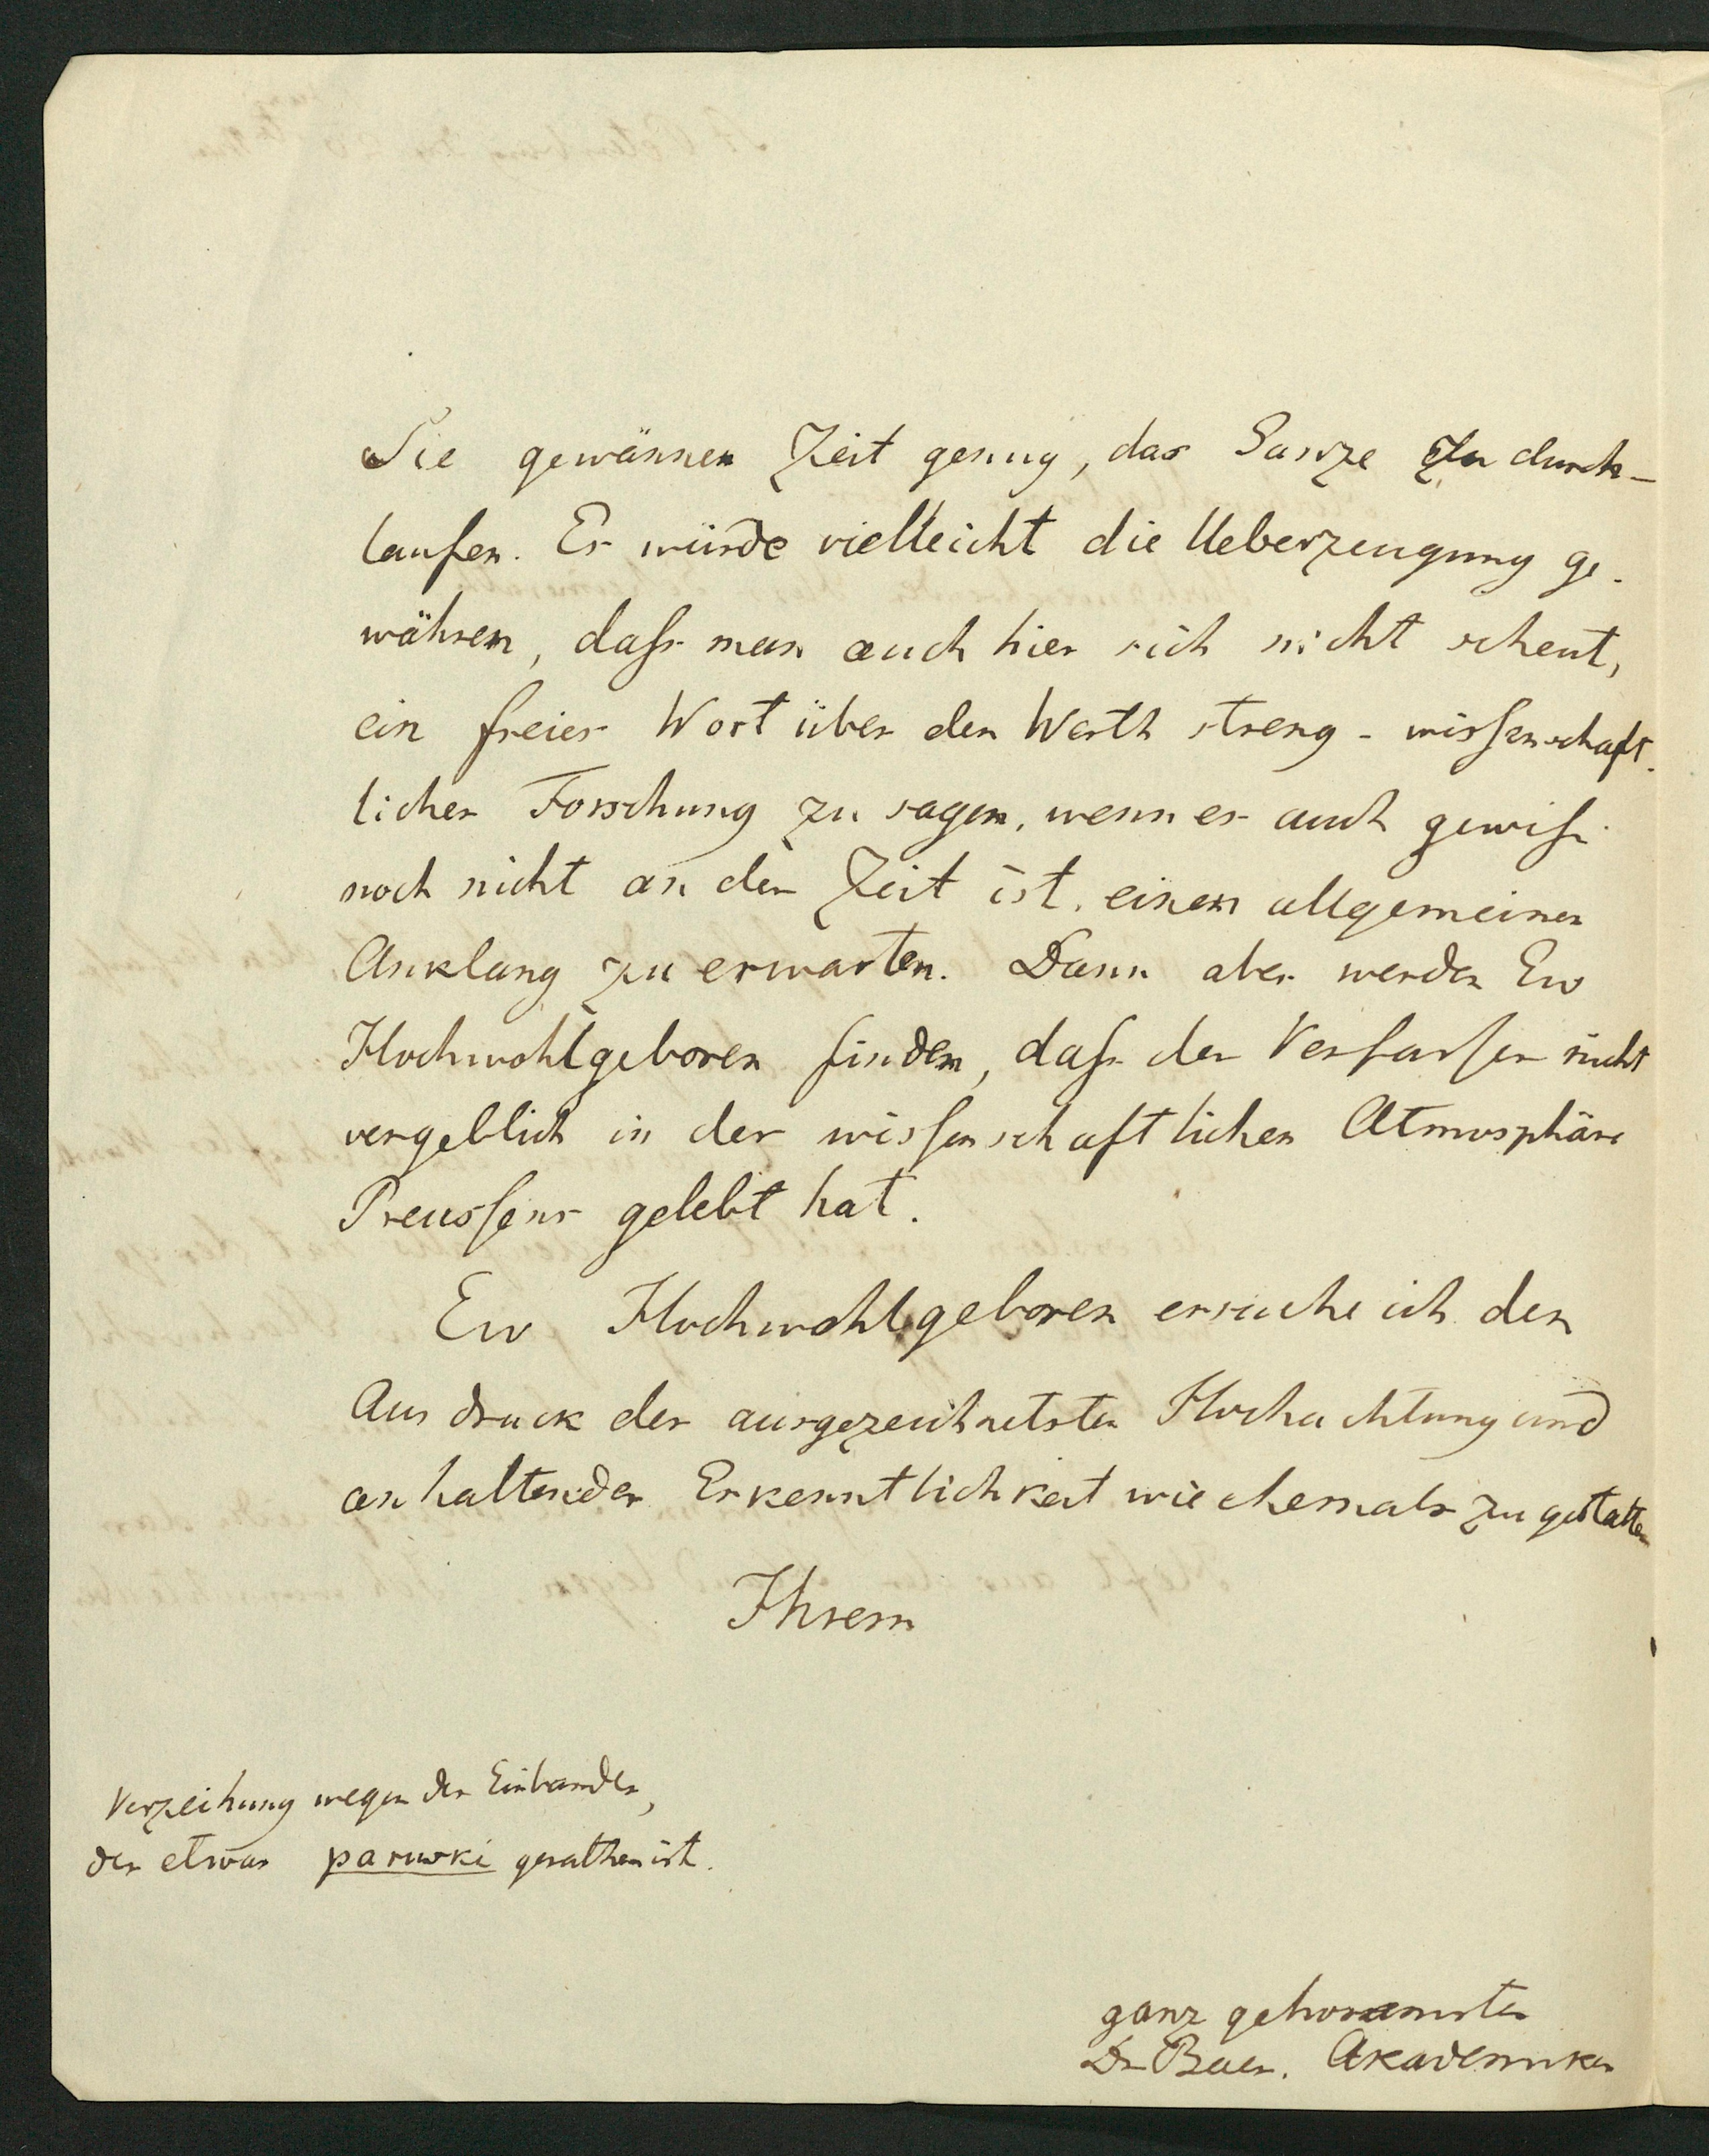 Sie gewännen Zeit genug, das Ganze zu durch-
laufen. Es würde vielleicht die Ueberzeugung ge-
währen, daſs man auch hier sich nicht scheut,
ein freies Wort über den Werth streng-wiſsenschaft-
licher Forschung zu sagen, wenn es auch gewiſs
noch nicht an der Zeit ist, einen allgemeinen
Anklang zu erwarten. Dann aber werden Ew
Hochwohlgeboren finden, daſs der Verfaſser nicht
vergeblich in der wissenschaftlichen Atmosphäre
Preussens gelebt hat.
Ew Hochwohlgeboren ersuche ich den
Ausdruck der ausgezeichnetsten Hochachtung und
anhaltender Erkenntlichkeit wie ehemals zu gestatten
Ihrem
Verzeihung wegen des Einbandes,
der etwas parusski gerathen ist.
ganz gehorsamsten
Dr Baer. Akademiker